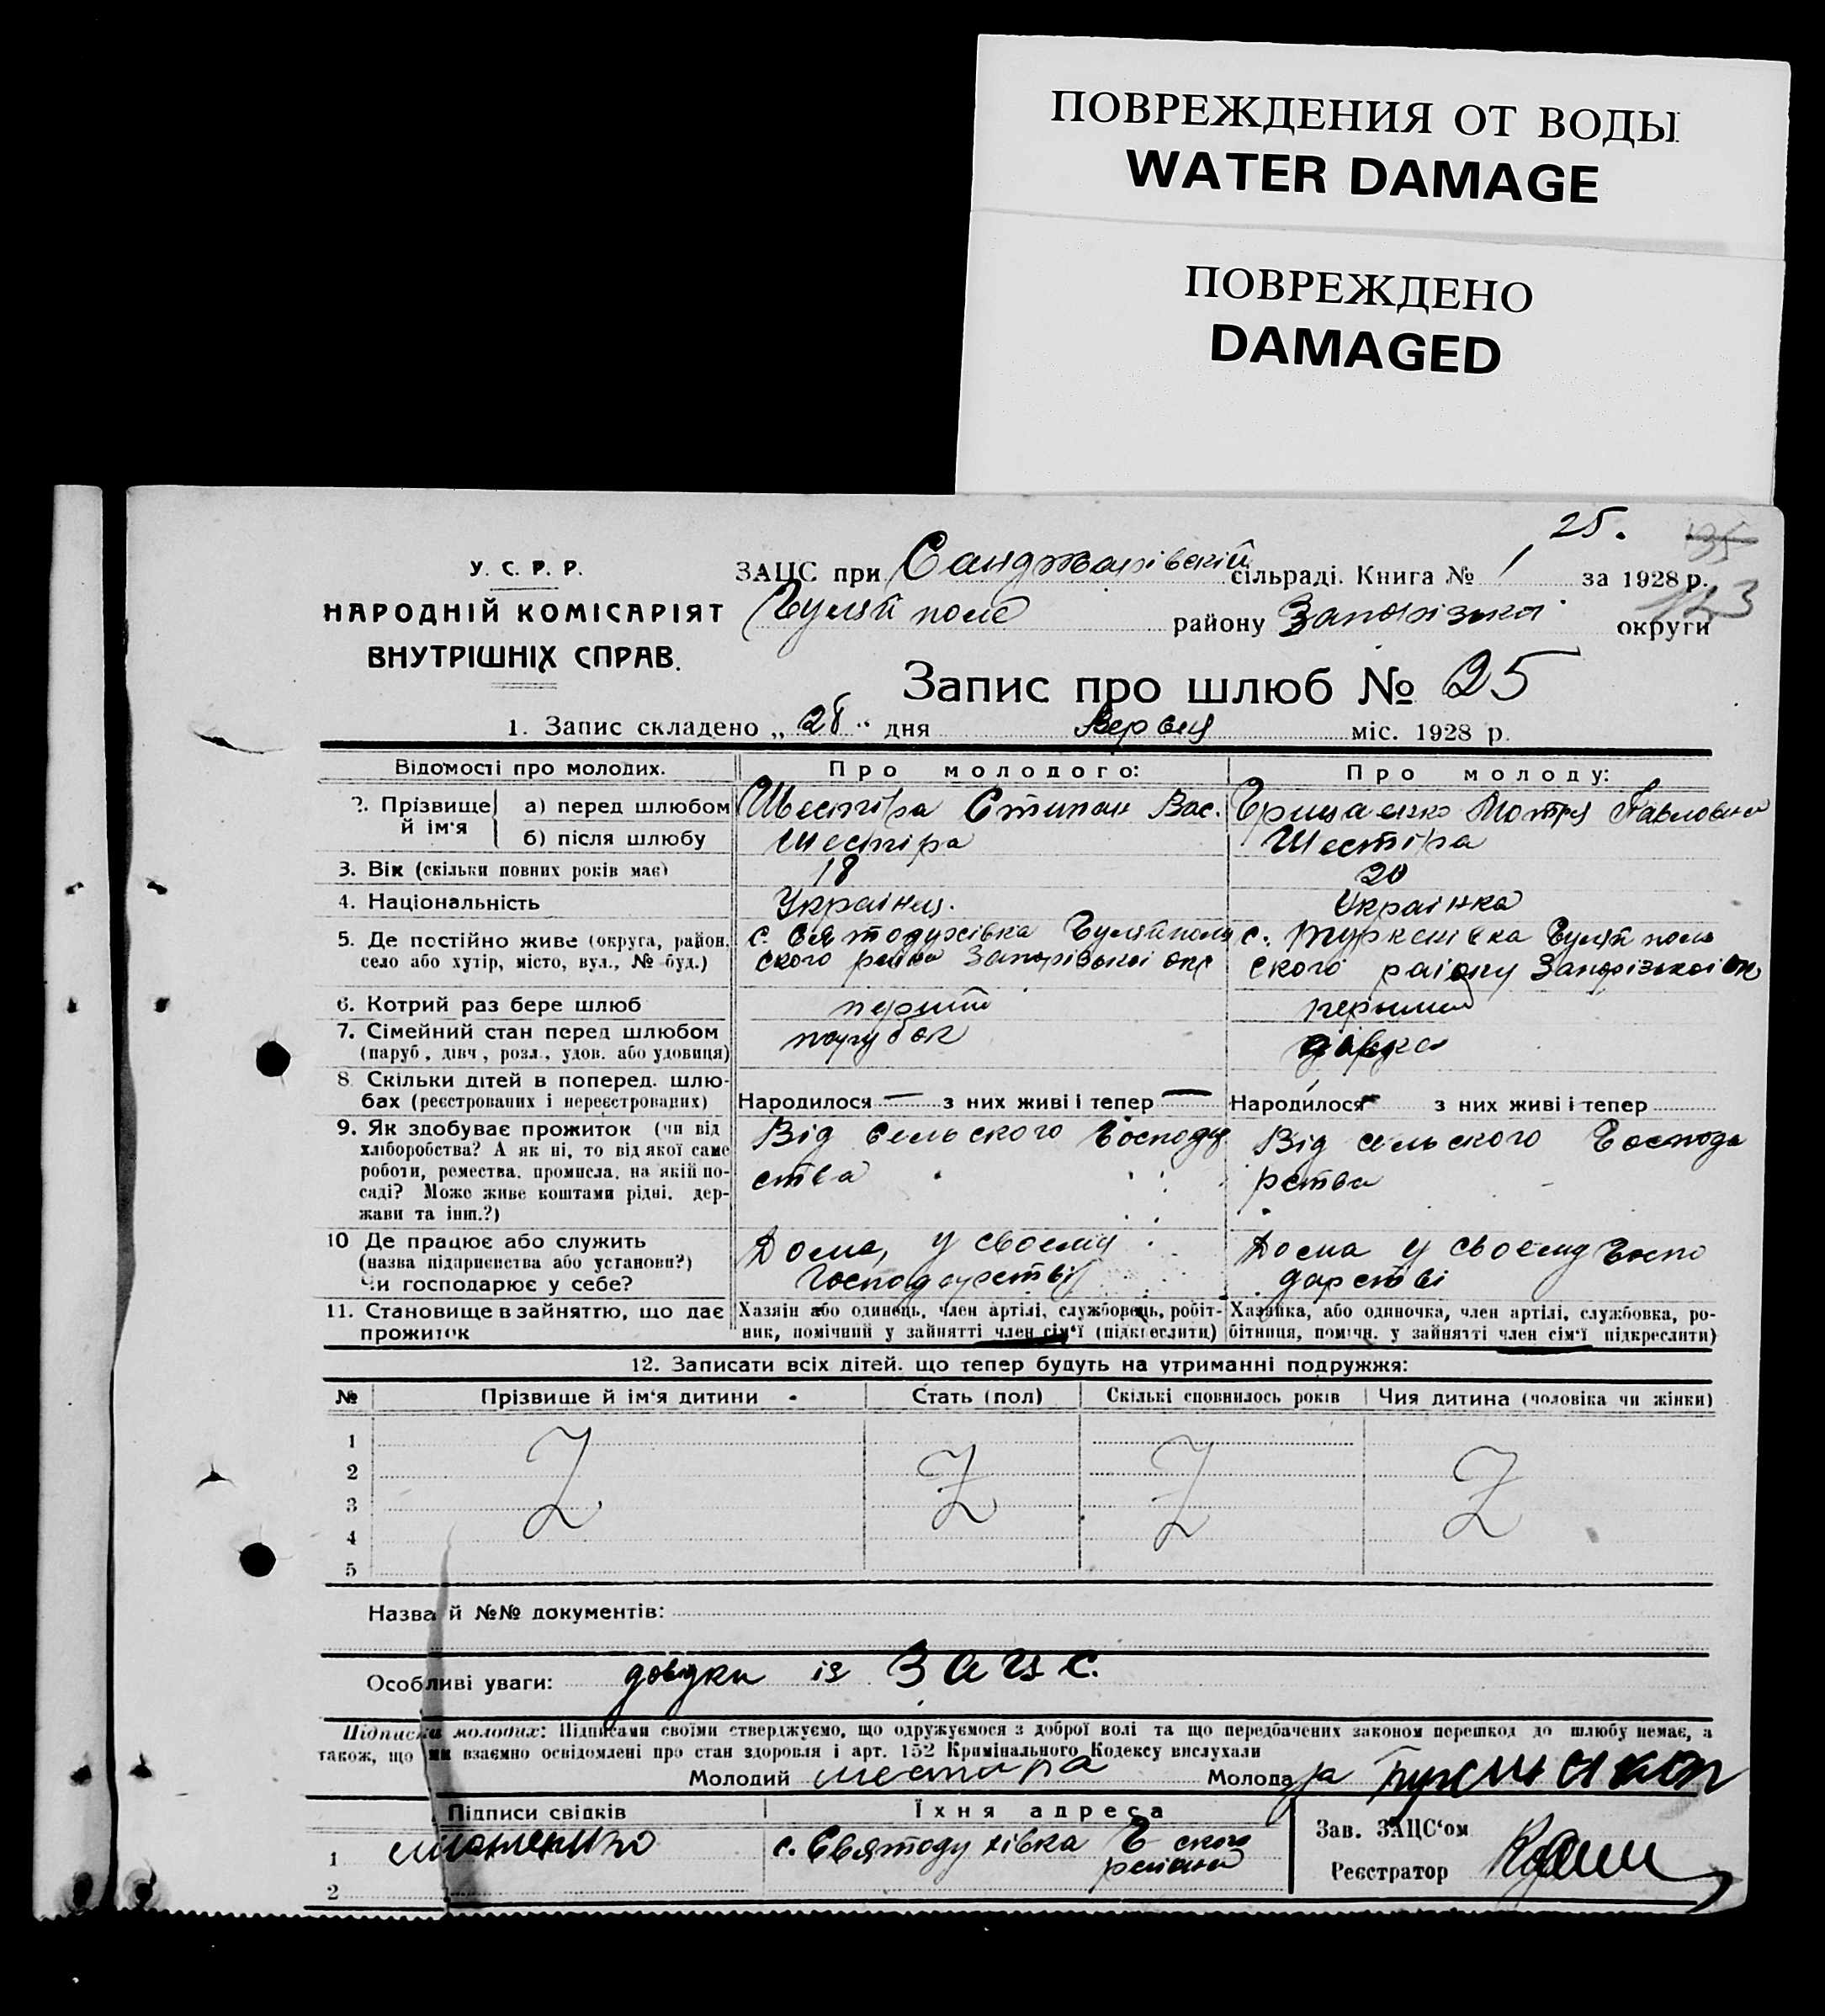 ПОВРЕЖДЕНИЯ ОТ ВОДЫ
WATER DAMAGE
ПОВРЕЖДЕНО
DAMAGED
25.
35
У. С. Р. Р.
НАРОДНІЙ КОМІСАРІЯТ
ВНУТРІШНІХ СПРАВ.
ЗАЦС при Санджарівській сільраді. Книга № 1 за 1928 р.
Гуляй поле району Запорізької округи
Запис про шлюб № 25
1. Запис складено „ 28 " дня Вересня міс. 1928 р.
Відомості про молодих. Про молодого: Про молоду:
2. Прізвище й ім'я а) перед шлюбом Шестіра Степан Вас. Грищенко Мотря Павловна
б) після шлюбу Шестіра Шестіра
3. Вік (скільки повних років має) 18 20
4. Національність Українец. Українка
5. Де постійно живе (округа, район, с. Святодухівка Гуляйполь с. Туркенівка Гуляй поль
село або хутір, місто, вул., № буд.) ского району Запорізької окр ского району Запорізької ок
6. Котрий раз бере шлюб перший перший
7. Сімейний стан перед шлюбом парубок дівка
(паруб, дівч, розл., удов. або удовиця)
8. Скільки дітей в поперед. шлю-
бах (реєстрованих і нереєстрованих) Народилося — з них живі і тепер — Народилося - з них живі і тепер
9. Як здобуває прожиток (чи від Від сельского Господар Від сельского Господа
хліборобства? А як ні, то від якої саме ства рства
роботи, ремества. промисла. на якій по-
саді? Може живе коштами рідні. дер-
жави та інш.?)
10 Де працює або служить Дома, у своему Дома у своему Госпо
(назва підприємства або установи?) Господарстві дарстві
Чи господарює у себе?
11. Становище в зайняттю, що дає Хазяїн або одинець, член артілі, службовець, робіт- Хазяйка, або одиночка, член артілі, службовка, ро-
прожиток ник, помічний у зайнятті член сім'ї (підкреслити) бітниця, помічн. у зайнятті член сім'ї підкреслити)
12. Записати всіх дітей. що тепер будуть на утриманні подружжя:
№ Прізвище й ім'я дитини Стать (пол) Скількі сповнилось років Чия дитина (чоловіка чи жінки)
1
2
3
4
5
Z Z Z Z
Назва й №№ документів:
Особливі уваги: довідки із ЗАГС.
Підписи молодих: Підписами своїми стверджуємо, що одружуємося з доброї волі та що передбачених законом перешкод до шлюбу немає, а
також, що ми взаємно освідомлені про стан здоровля і арт. 152 Кримінального Кодексу вислухали
Молодий шестира Молода
Підписи свідків Їхня адреса
1 с. Святодухівка Г-ского
района
2
Зав. ЗАЦС'ом
Реєстратор